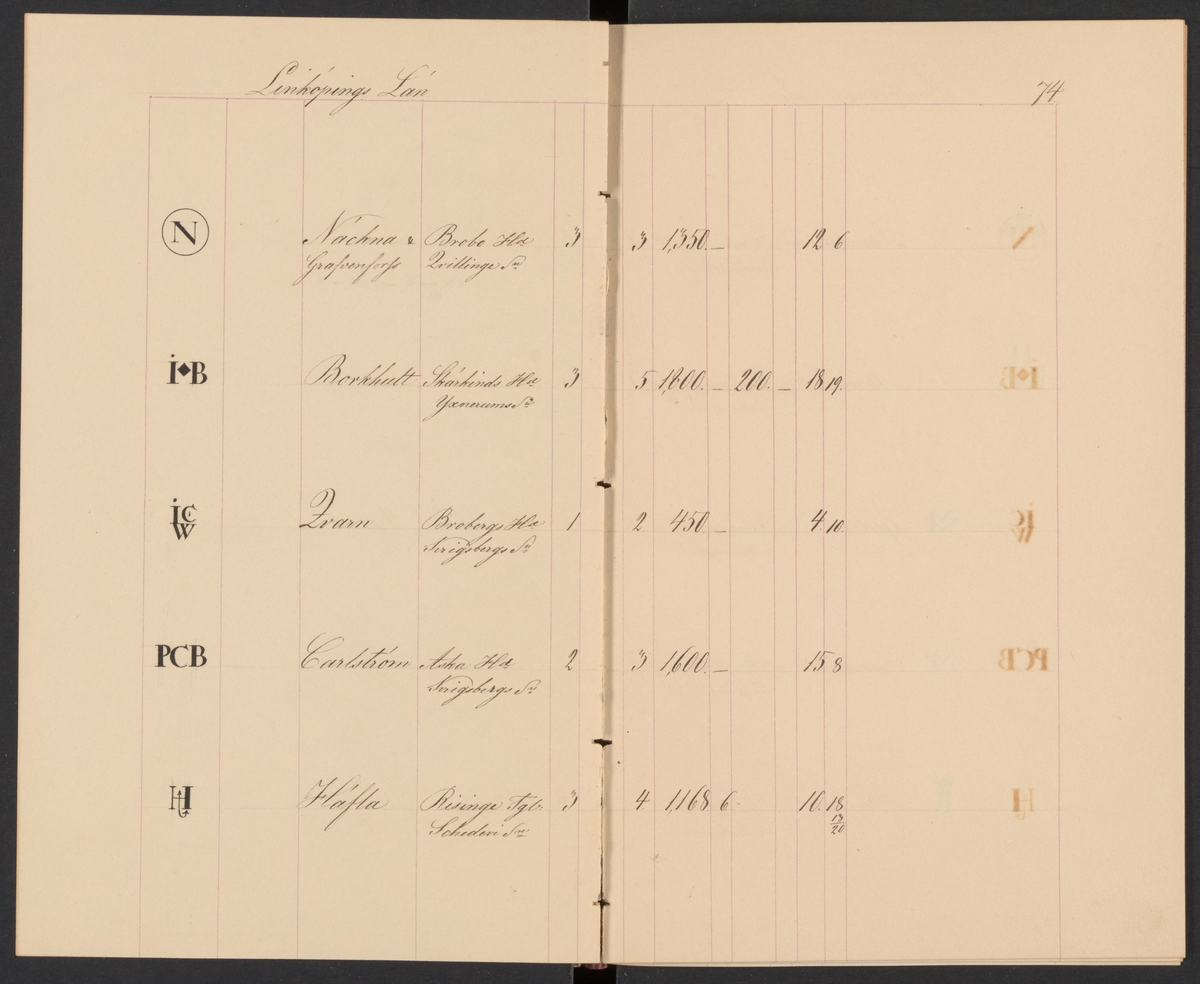 Linköpings Län
74
N Näckna & Brobo Hd 3 3 1,350. — 12 6
Grafvensforss Qvillinge Sn
I◆B Borkhult Skärkinds Hd 3 5 1,800. — 200. — 18 19.
Yxnerums Sn
ICW Qvarn Brobergs Hd 1 2 450 — 4 10.
Kirigsbergs Sn
PCB Carlström Aska Hd 2 3 1,600. — 15 8
Kirigsbergs Sn
HI Häfla Risinge Tgl. 3 4 1,168 6. 10. 18
Schedevi Sn 13
20